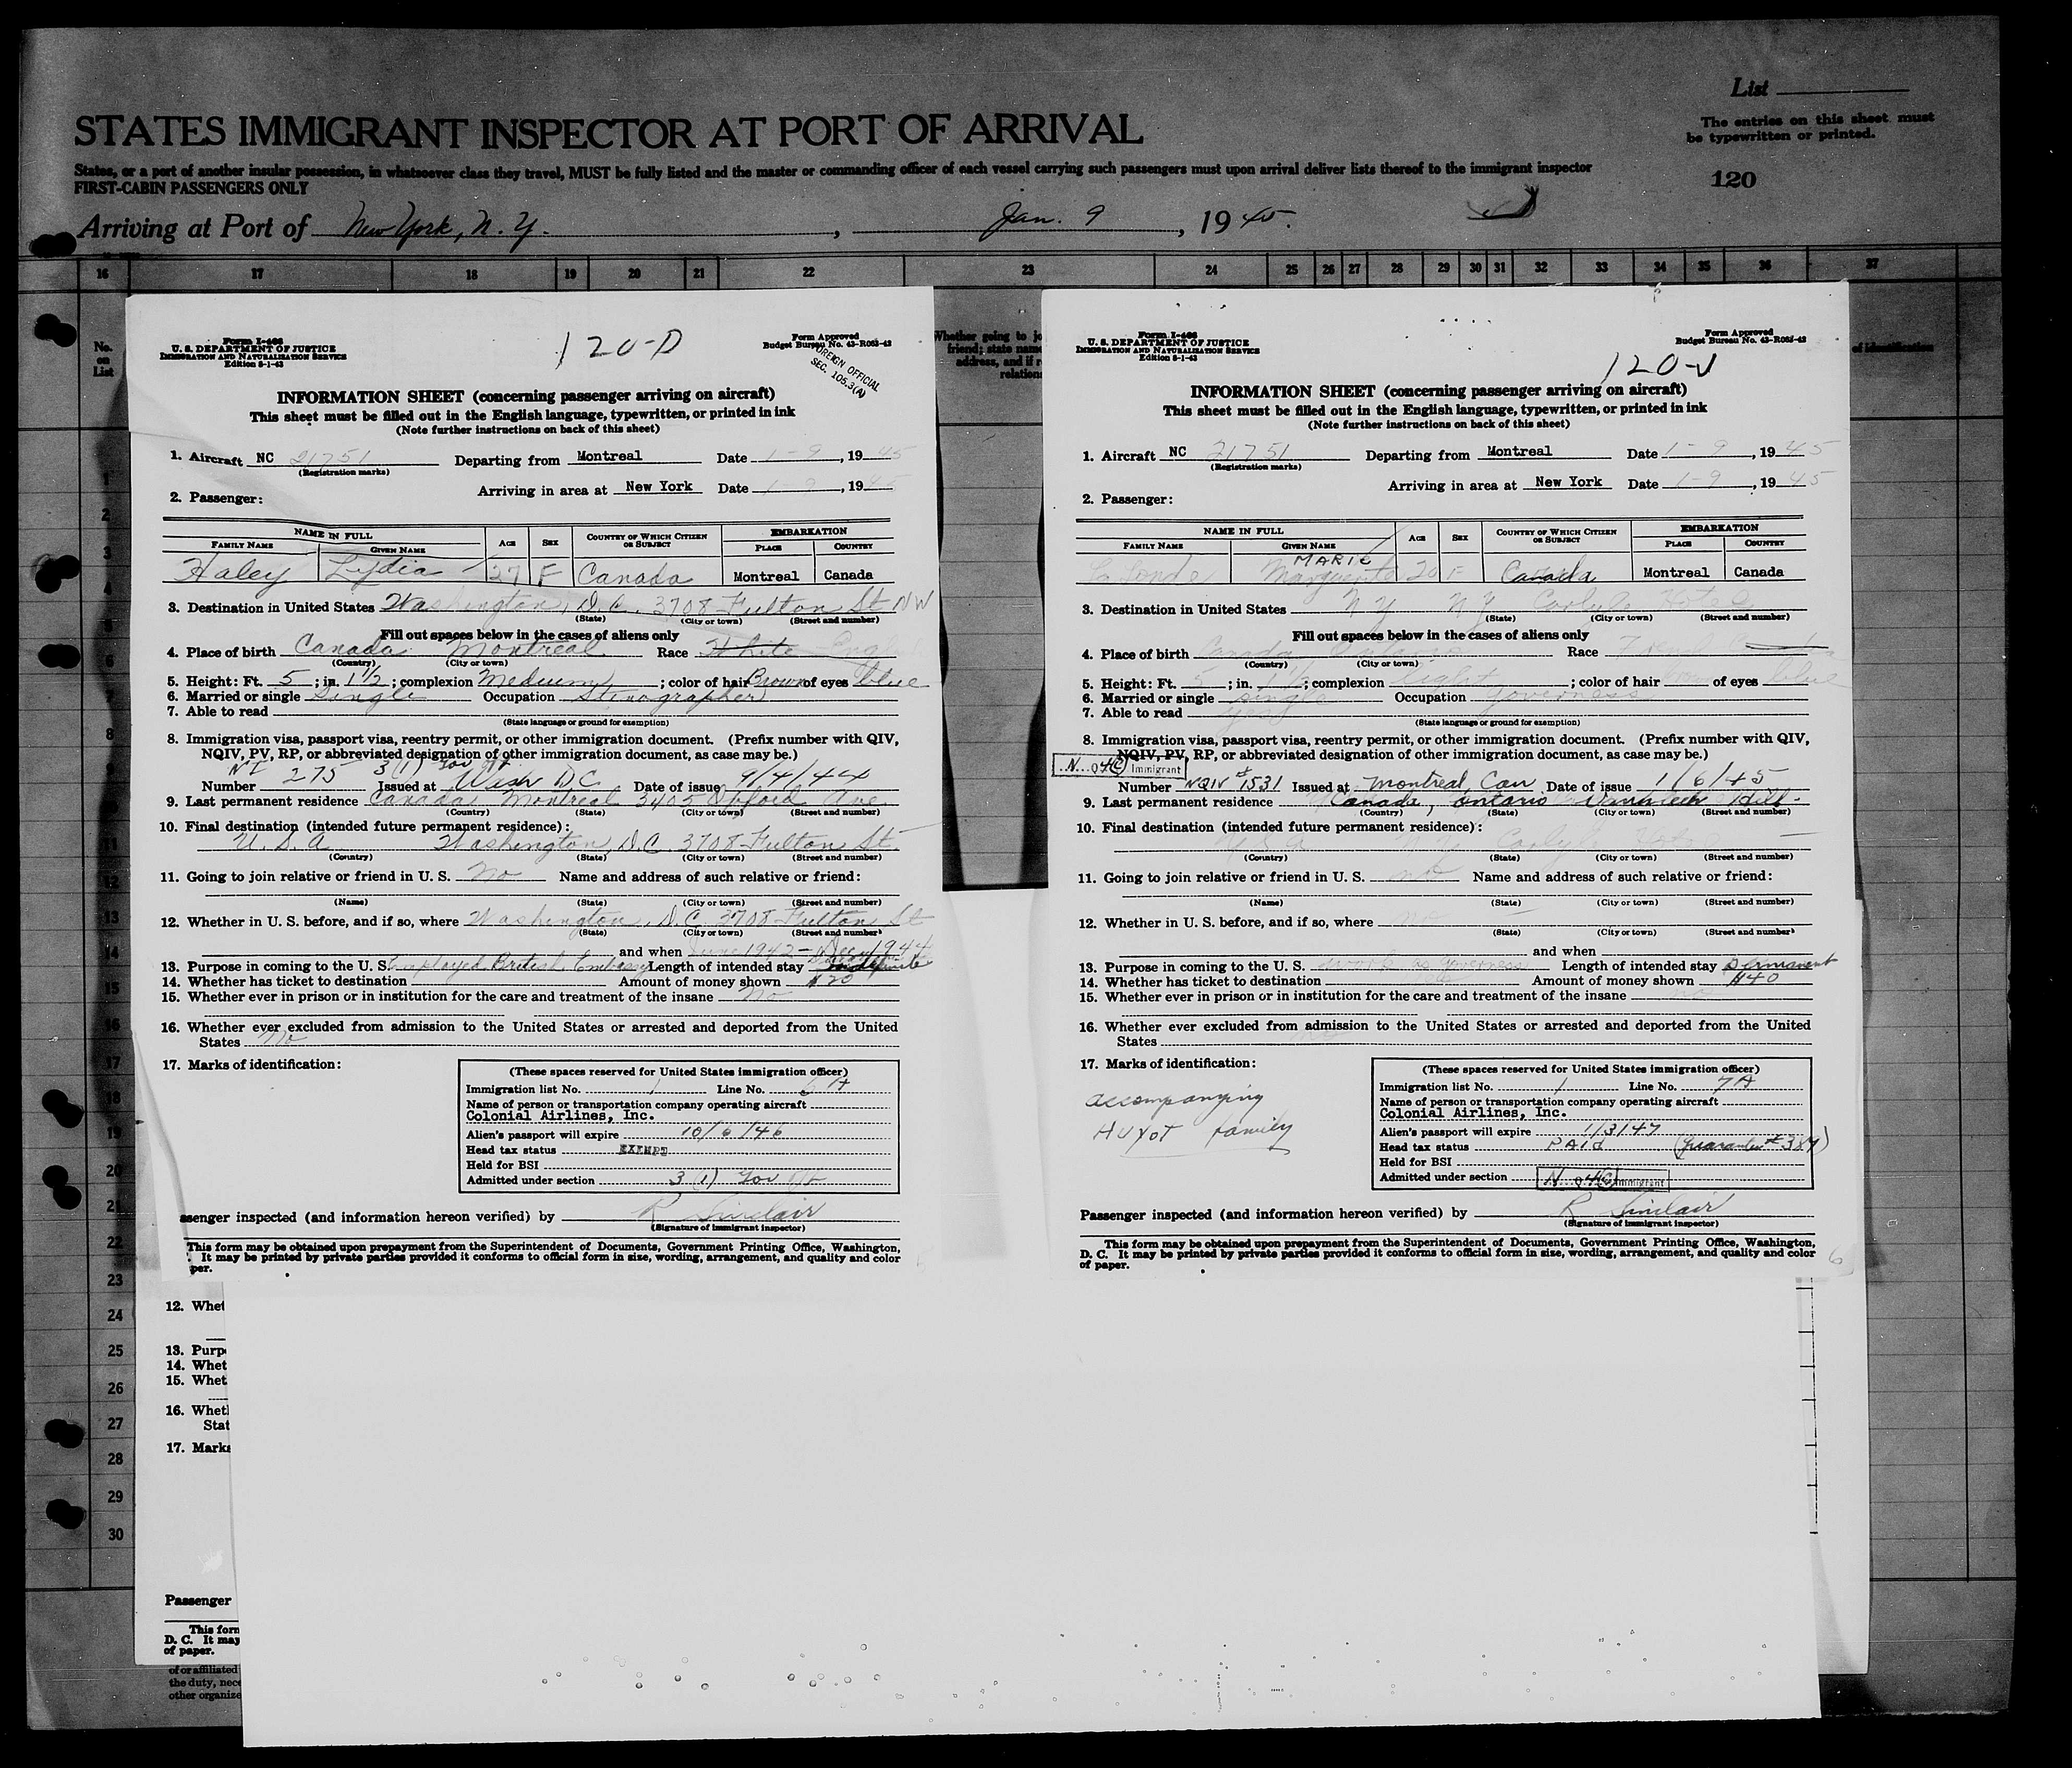 List
STATES IMMIGRANT INSPECTOR AT PORT OF ARRIVAL
The entries on this sheet must
be typewritten or printed.
States, or a port of another insular possession, in whatsoever class they travel, MUST be fully listed and the master or commanding officer of each vessel carrying such passengers must upon arrival deliver lists thereof to the immigrant inspector
FIRST-CABIN PASSENGERS ONLY
120
Arriving at Port of New York, N. Y. , Jan. 9 , 1945.
16 17 18 19 20 21 22 23 24 25 26 27 28 29 30 31 32 33 34 35 36 37
No.
on
List
Whether going to jo
friend; state name
address, and if r
relations
of identification
Form I-466
U. S. DEPARTMENT OF JUSTICE
IMMIGRATION AND NATURALIZATION SERVICE
Edition 8-1-43
120-D
Form Approved
Budget Bureau No. 43-R083-43
FOREIGN OFFICIAL
SEC. 105.3(A)
INFORMATION SHEET (concerning passenger arriving on aircraft)
This sheet must be filled out in the English language, typewritten, or printed in ink
(Note further instructions on back of this sheet)
1. Aircraft NC 21751 Departing from Montreal Date 1-9, 1945
(Registration marks)
Arriving in area at New York Date 1-9, 1945
2. Passenger:
NAME IN FULL AGE SEX COUNTRY OF WHICH CITIZEN OR SUBJECT EMBARKATION
FAMILY NAME GIVEN NAME PLACE COUNTRY
Haley Lydia 27 F Canada Montreal Canada
3. Destination in United States Washington, D.C. 3708 Fulton St NW
(State) (City or town) (Street and number)
Fill out spaces below in the cases of aliens only
4. Place of birth Canada Montreal Race White Eng
(Country) (City or town)
5. Height: Ft. 5 ; in. 1 1/2 ; complexion Medium ; color of hair Brown of eyes blue
6. Married or single Single Occupation Stenographer
7. Able to read
(State language or ground for exemption)
8. Immigration visa, passport visa, reentry permit, or other immigration document. (Prefix number with QIV,
NQIV, PV, RP, or abbreviated designation of other immigration document, as case may be.)
3(1) Gov Off
Number 275 Issued at Wash D C Date of issue 9/4/44
9. Last permanent residence Canada Montreal 3405 Ave
(Country) (State) (City or town) (Street and number)
10. Final destination (intended future permanent residence):
U. S. A Washington, D.C. 3708 Fulton St.
(Country) (State) (City or town) (Street and number)
11. Going to join relative or friend in U. S. No Name and address of such relative or friend:
(Name) (State) (City or town) (Street and number)
12. Whether in U. S. before, and if so, where Washington, D.C. 3708 Fulton St
(State) (City or town) (Street and number)
and when June 1942 - Dec 1944
13. Purpose in coming to the U. S. Employed British Embassy Length of intended stay Indefinite
14. Whether has ticket to destination Amount of money shown $20
15. Whether ever in prison or in institution for the care and treatment of the insane No
16. Whether ever excluded from admission to the United States or arrested and deported from the United
States No
17. Marks of identification:
(These spaces reserved for United States immigration officer)
Immigration list No. 1 Line No. 6A
Name of person or transportation company operating aircraft
Colonial Airlines, Inc.
Alien's passport will expire 10/6/46
Head tax status EXEMPT
Held for BSI
Admitted under section 3 (1) Gov Off
assenger inspected (and information hereon verified) by R Sinclair
(Signature of immigrant inspector)
This form may be obtained upon prepayment from the Superintendent of Documents, Government Printing Office, Washington,
It may be printed by private parties provided it conforms to official form in size, wording, arrangement, and quality and color
per.
Form I-466
U. S. DEPARTMENT OF JUSTICE
IMMIGRATION AND NATURALIZATION SERVICE
Edition 8-1-43
Form Approved
Budget Bureau No. 43-R083-43
INFORMATION SHEET (concerning passenger arriving on aircraft)
This sheet must be filled out in the English language, typewritten, or printed in ink
(Note further instructions on back of this sheet)
1. Aircraft NC 21751 Departing from Montreal Date 1-9, 1945
(Registration marks)
Arriving in area at New York Date 1-9, 1945
2. Passenger:
NAME IN FULL AGE SEX COUNTRY OF WHICH CITIZEN OR SUBJECT EMBARKATION
FAMILY NAME GIVEN NAME PLACE COUNTRY
MARIE
La Londe Marguerite 20 F Canada Montreal Canada
3. Destination in United States N Y N Y Carlyle Hotel
(State) (City or town) (Street and number)
Fill out spaces below in the cases of aliens only
4. Place of birth Canada Ontario Race French
(Country) (City or town)
5. Height: Ft. 5 ; in. 1 1/2 ; complexion light ; color of hair of eyes blue
6. Married or single single Occupation governess
7. Able to read yes
(State language or ground for exemption)
8. Immigration visa, passport visa, reentry permit, or other immigration document. (Prefix number with QIV,
NQIV, PV, RP, or abbreviated designation of other immigration document, as case may be.)
N. 4(C) Immigrant
Number NQIV # 1531 Issued at Montreal, Can Date of issue 1/6/45
9. Last permanent residence Canada, Ontario Vankleek Hill.
(Country) (State) (City or town) (Street and number)
10. Final destination (intended future permanent residence):
U S A N Y Carlyle Hotel
(Country) (State) (City or town) (Street and number)
11. Going to join relative or friend in U. S. no Name and address of such relative or friend:
(Name) (State) (City or town) (Street and number)
12. Whether in U. S. before, and if so, where no
(State) (City or town) (Street and number)
and when
13. Purpose in coming to the U. S. work as governess Length of intended stay Permanent
14. Whether has ticket to destination Amount of money shown $40
15. Whether ever in prison or in institution for the care and treatment of the insane no
16. Whether ever excluded from admission to the United States or arrested and deported from the United
States no
17. Marks of identification:
accompanying
Huyot family
(These spaces reserved for United States immigration officer)
Immigration list No. 1 Line No. 7A
Name of person or transportation company operating aircraft
Colonial Airlines, Inc.
Alien's passport will expire 1/3/47
Head tax status PAID
Held for BSI
Admitted under section N. 4(C) Immigrant
Passenger inspected (and information hereon verified) by R Sinclair
(Signature of immigrant inspector)
This form may be obtained upon prepayment from the Superintendent of Documents, Government Printing Office, Washington,
D. C. It may be printed by private parties provided it conforms to official form in size, wording, arrangement, and quality and color
of paper.
1
2
3
4
5
6
7
8
11
12
13
14
15
16
17
18
19
20
21
22
23
24
25
26
27
28
29
30
12. Whet
13. Purp
14. Whet
15. Whet
16. Wheth
Stat
17. Marks
Passenger
This form
D. C. It may
of paper.
of or affiliated
the duty, nece
other organize